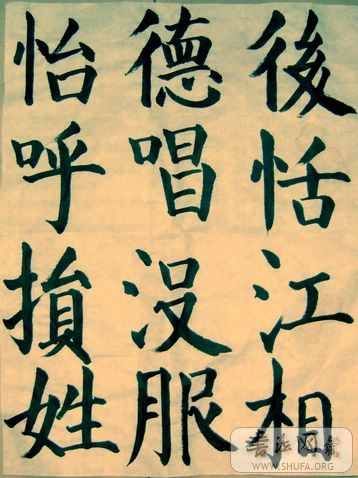 後恬江相
德唱没服
怡呼損姓
書法網
WWW.SHUFA.ORG